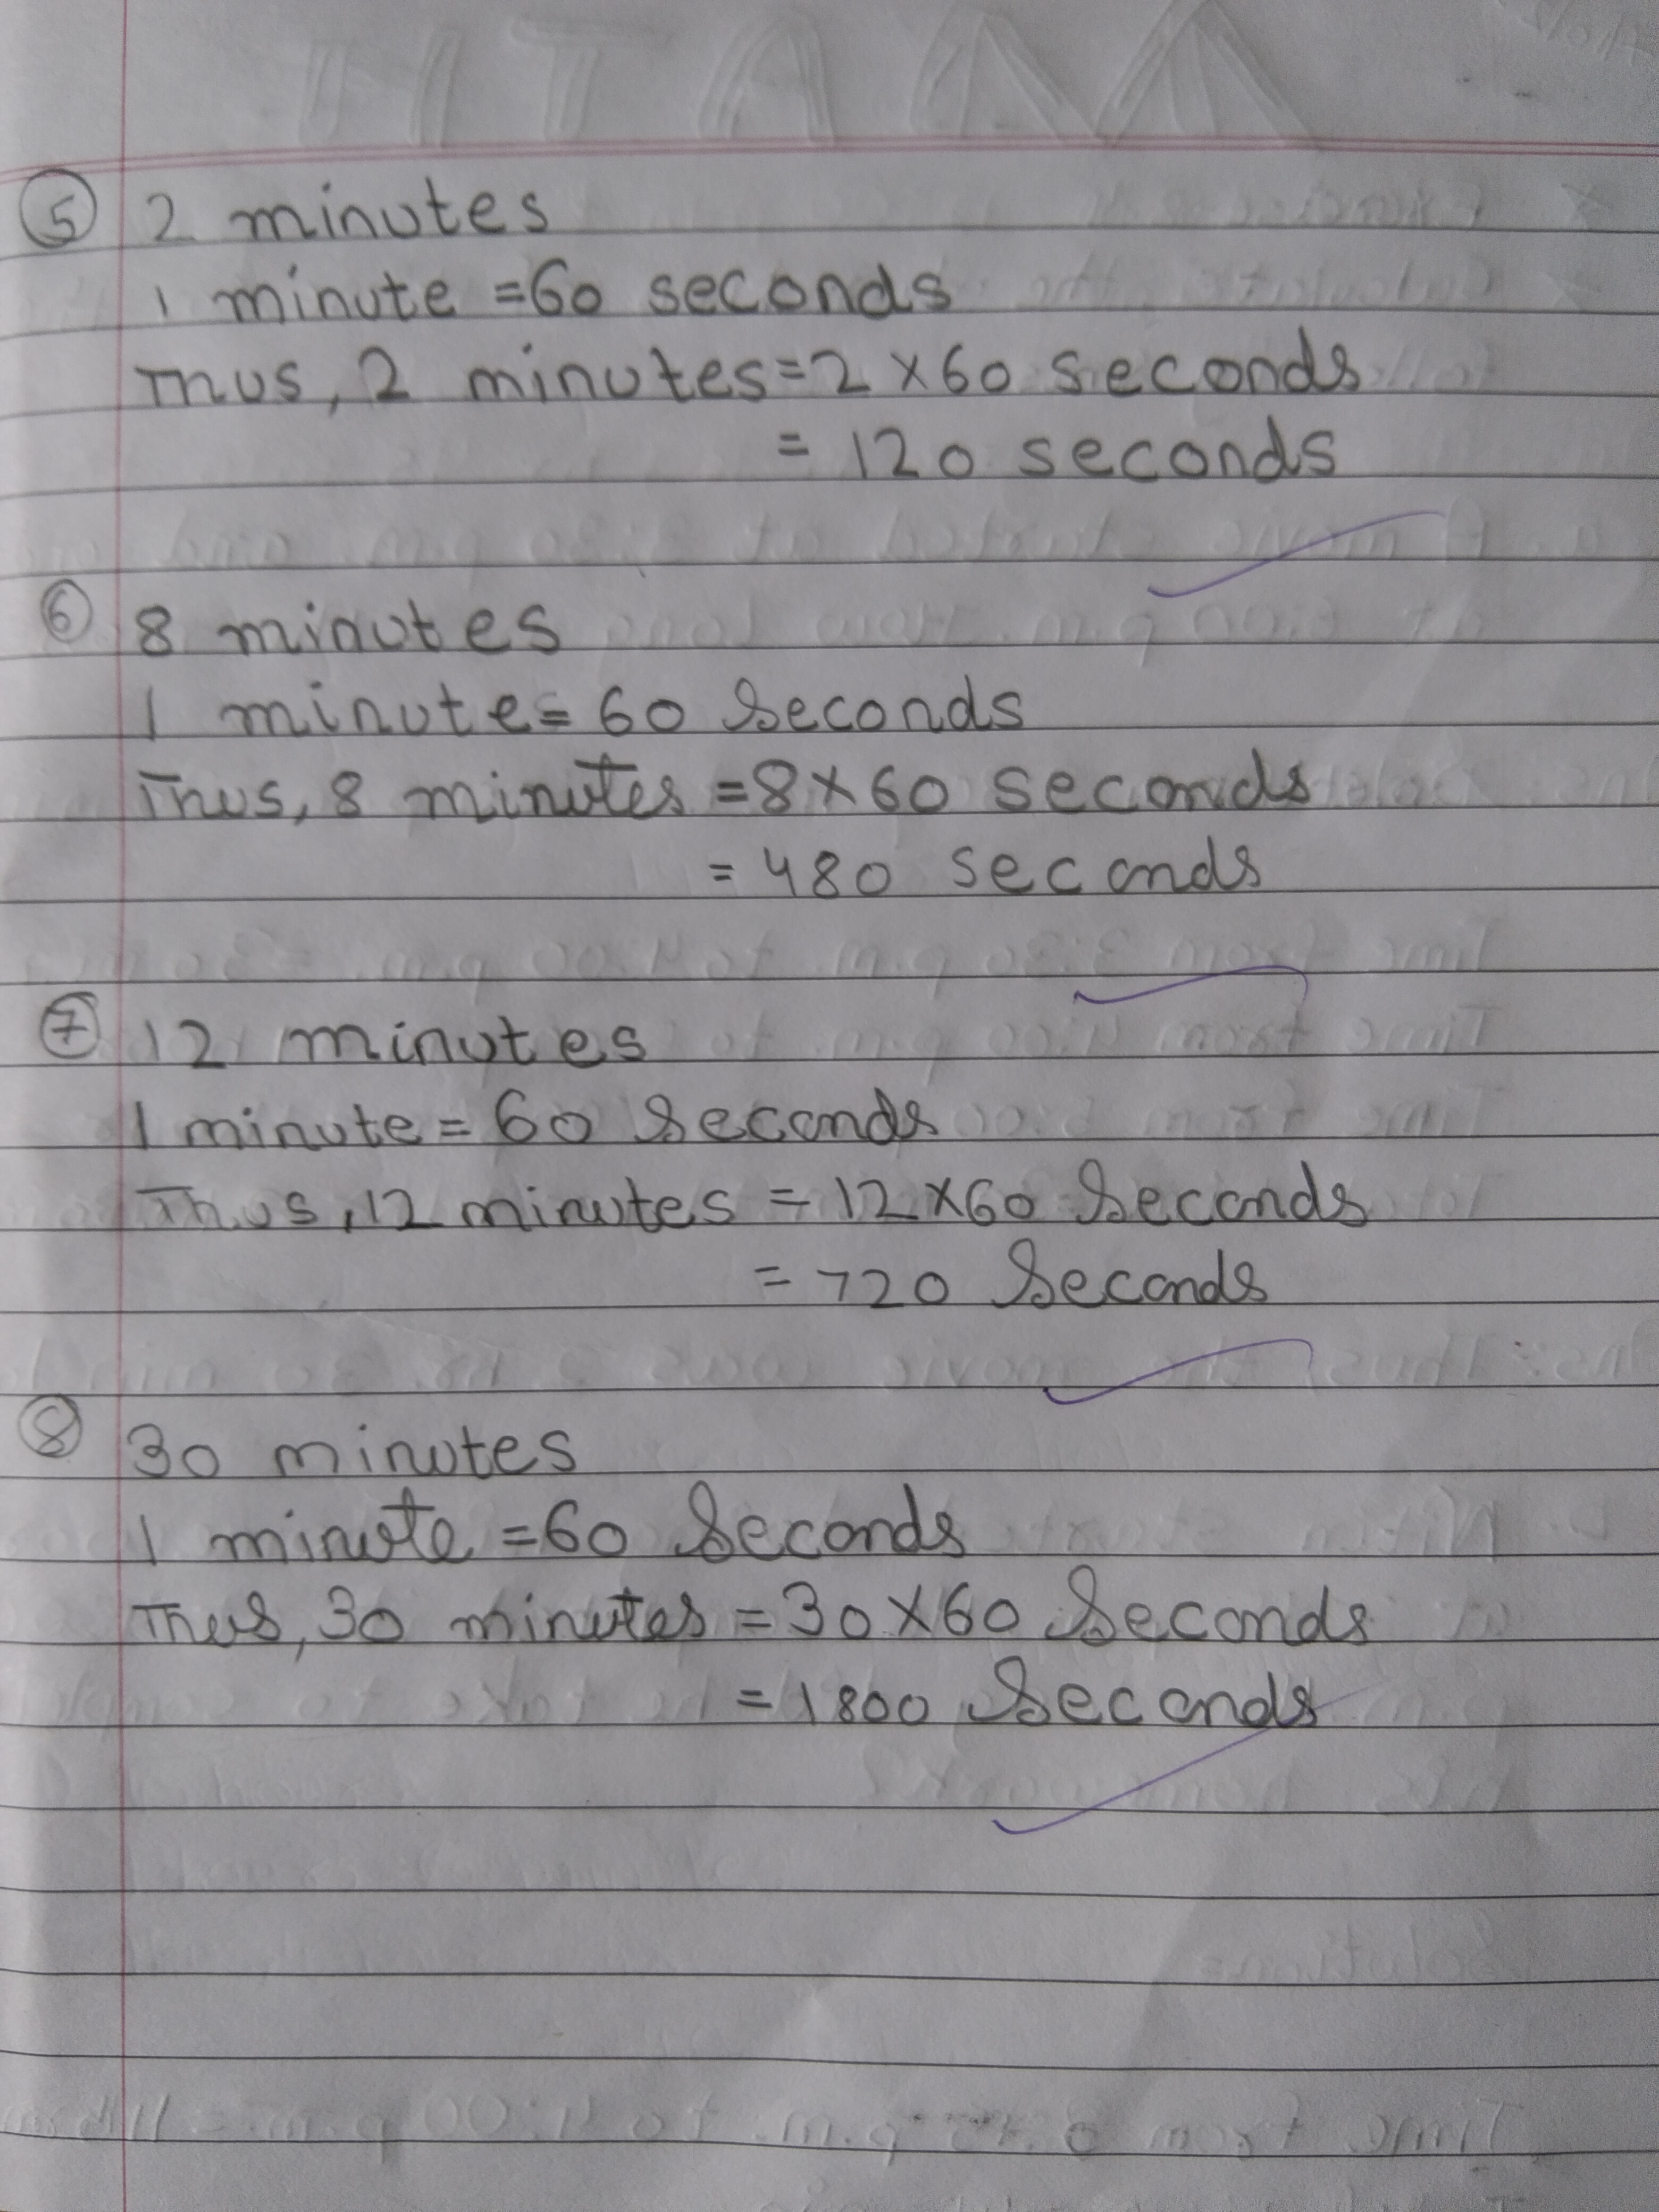 5 2 minutes
1 minute =60 seconds
Thus, 2 minutes=2×60 seconds
= 120 seconds
6 8 minutes
1 minute= 60 Seconds
Thus, 8 minutes =8×60 seconds
= 480 seconds
7 12 minutes
1 minute= 60 Seconds
Thus, 12 minutes = 12×60 Seconds
= 720 Seconds
8 30 minutes
1 minute =60 Seconds
Thus, 30 minutes =30×60 Seconds
=1800 Seconds